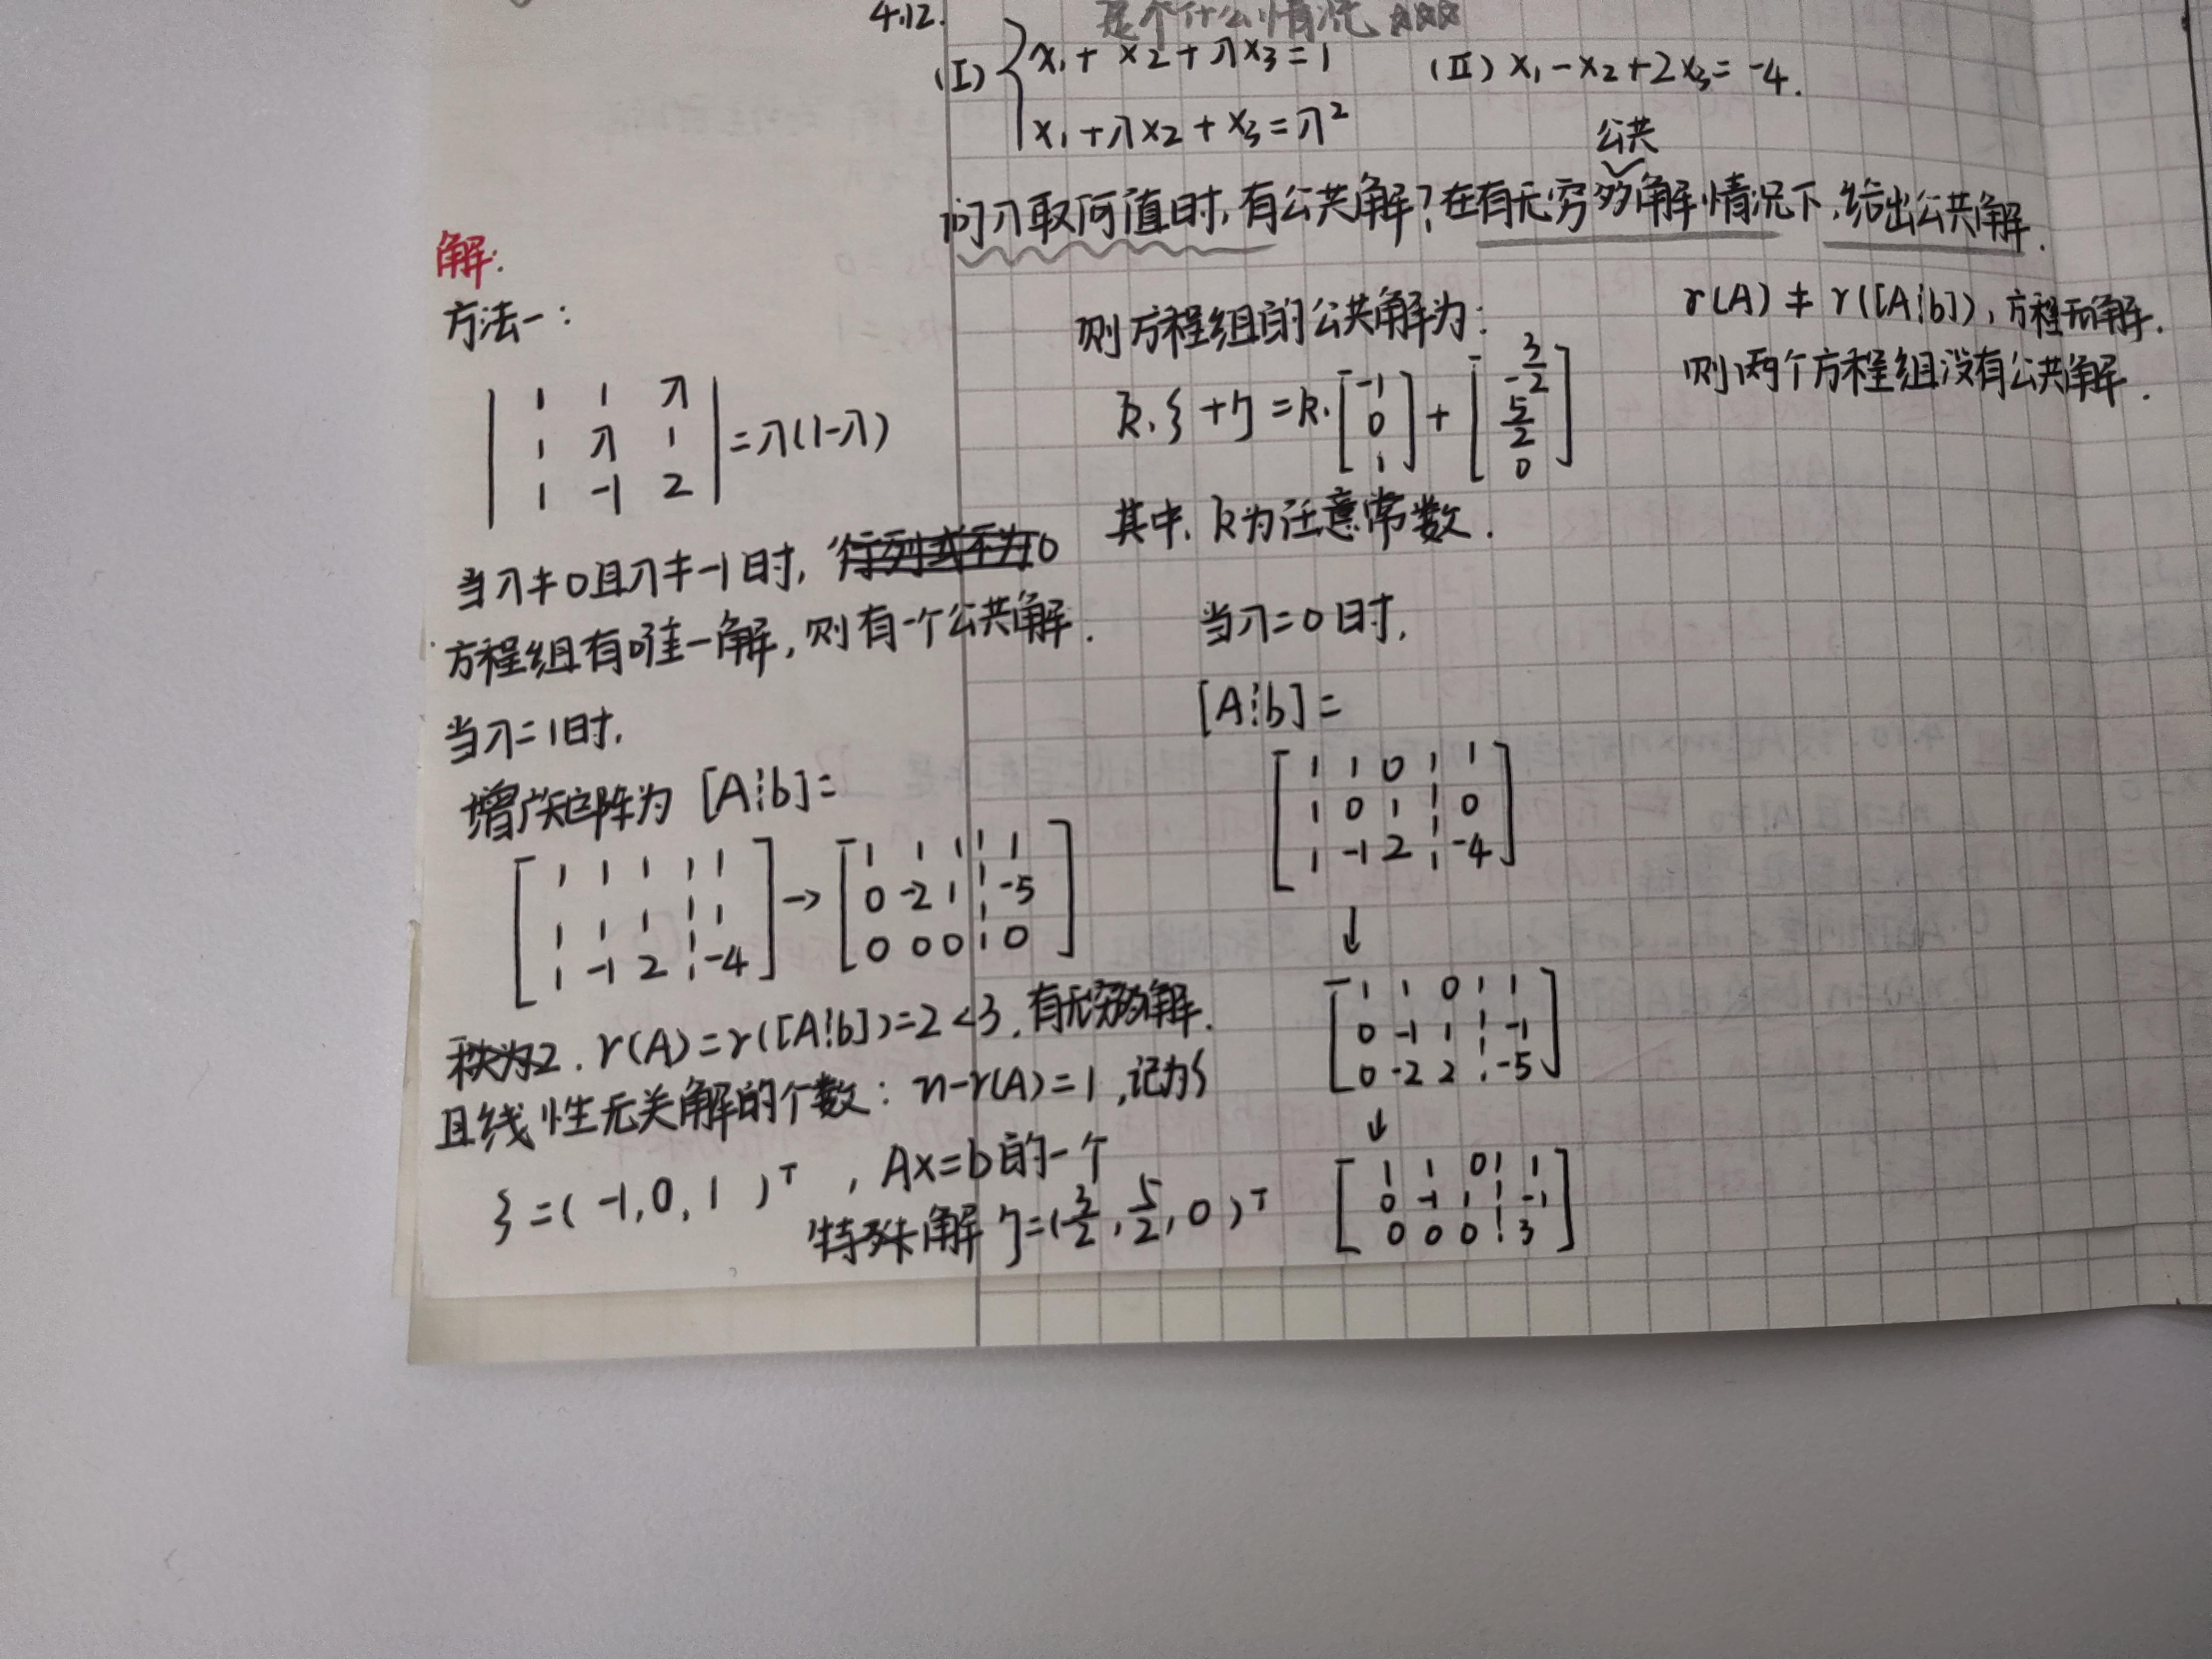 4.12.
是个什么情况 ☆☆☆
(I) { x₁ + x₂ + λx₃ = 1
x₁ + λx₂ + x₃ = λ²
(II) x₁ - x₂ + 2x₃ = -4.
公共
问λ取何值时,有公共解?在有无穷多解情况下,给出公共解.
解:
方法一:
| 1 1 λ |
| 1 λ 1 | = λ(1-λ)
| 1 -1 2 |
当λ≠0且λ≠-1时, 行列式不为0
方程组有唯一解,则有一个公共解.
当λ=1时,
增广矩阵为 [A┆b]=
[ 1 1 1 ┆ 1 ] → [ 1 1 1 ┆ 1 ]
[ 1 1 1 ┆ 1 ] [ 0 -2 1 ┆ -5 ]
[ 1 -1 2 ┆ -4 ] [ 0 0 0 ┆ 0 ]
秩为2. r(A)=r([A┆b])=2<3, 有无穷多解.
且线性无关解的个数: n-r(A)=1, 记为ξ
ξ=(-1,0,1)ᵀ, Ax=b的一个
特殊解 η=(-3/2, 5/2, 0)ᵀ
则方程组的公共解为:
k·ξ+η=k·[ -1 ] + [ -3/2 ]
[ 0 ] [ 5/2 ]
[ 1 ] [ 0 ]
其中, k为任意常数.
当λ=0时,
[A┆b]=
[ 1 1 0 ┆ 1 ]
[ 1 0 1 ┆ 0 ]
[ 1 -1 2 ┆ -4 ]
↓
[ 1 1 0 ┆ 1 ]
[ 0 -1 1 ┆ -1 ]
[ 0 -2 2 ┆ -5 ]
↓
[ 1 1 0 ┆ 1 ]
[ 0 -1 1 ┆ -1 ]
[ 0 0 0 ┆ 3 ]
r(A) ≠ r([A┆b]), 方程无解.
则两个方程组没有公共解.